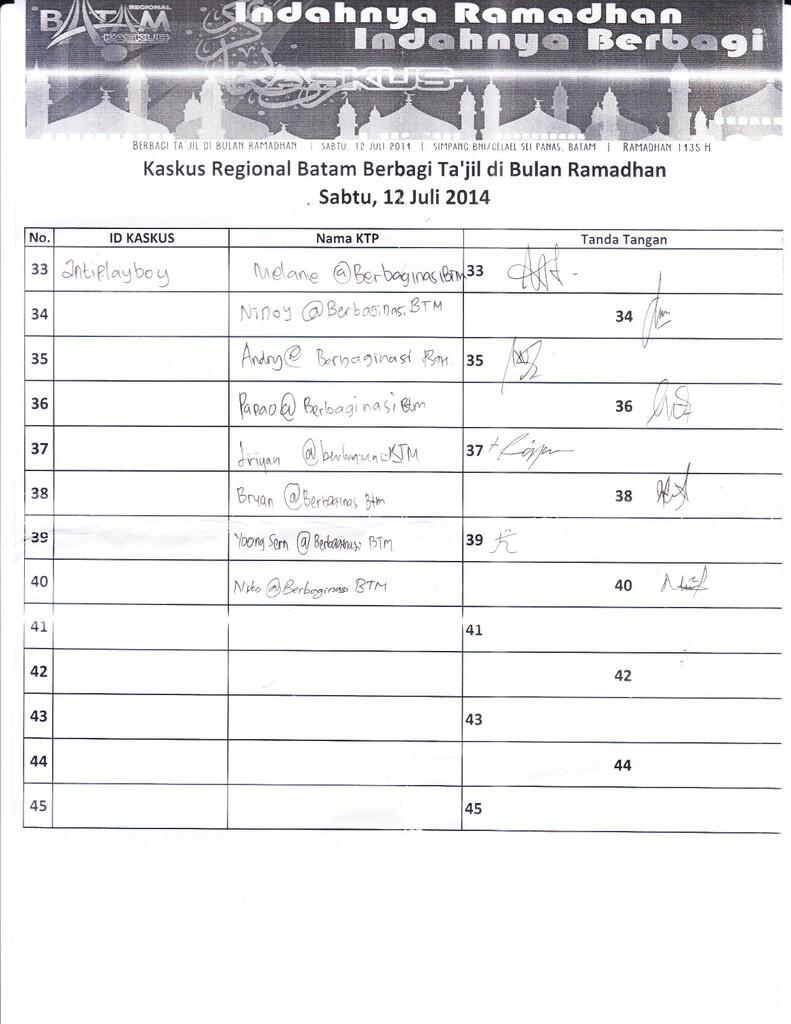 REGIONAL
BATAM
KASKUS
Indahnya Ramadhan
Indahnya Berbagi
KASKUS
BERBAGI TA'JIL DI BULAN RAMADHAN | SABTU, 12 JULI 2014 | SIMPANG BNI/GELAEL SEI PANAS, BATAM | RAMADHAN 1435 H
Kaskus Regional Batam Berbagi Ta'jil di Bulan Ramadhan
Sabtu, 12 Juli 2014
No. ID KASKUS Nama KTP Tanda Tangan
33 antiplayboy Melanie @BerbaginasiBTM 33
34 Ninoy @Berbaginasi BTM 34
35 Andry@ Berbaginasi BTM. 35
36 Papao@ Berbaginasi Btm 36
37 37
38 Bryan @Berbaginasi Btm 38
39 Yoong Sern @Berbaginasi BTM 39
40 Niko @Berbaginasi BTM 40
41 41
42 42
43 43
44 44
45 45